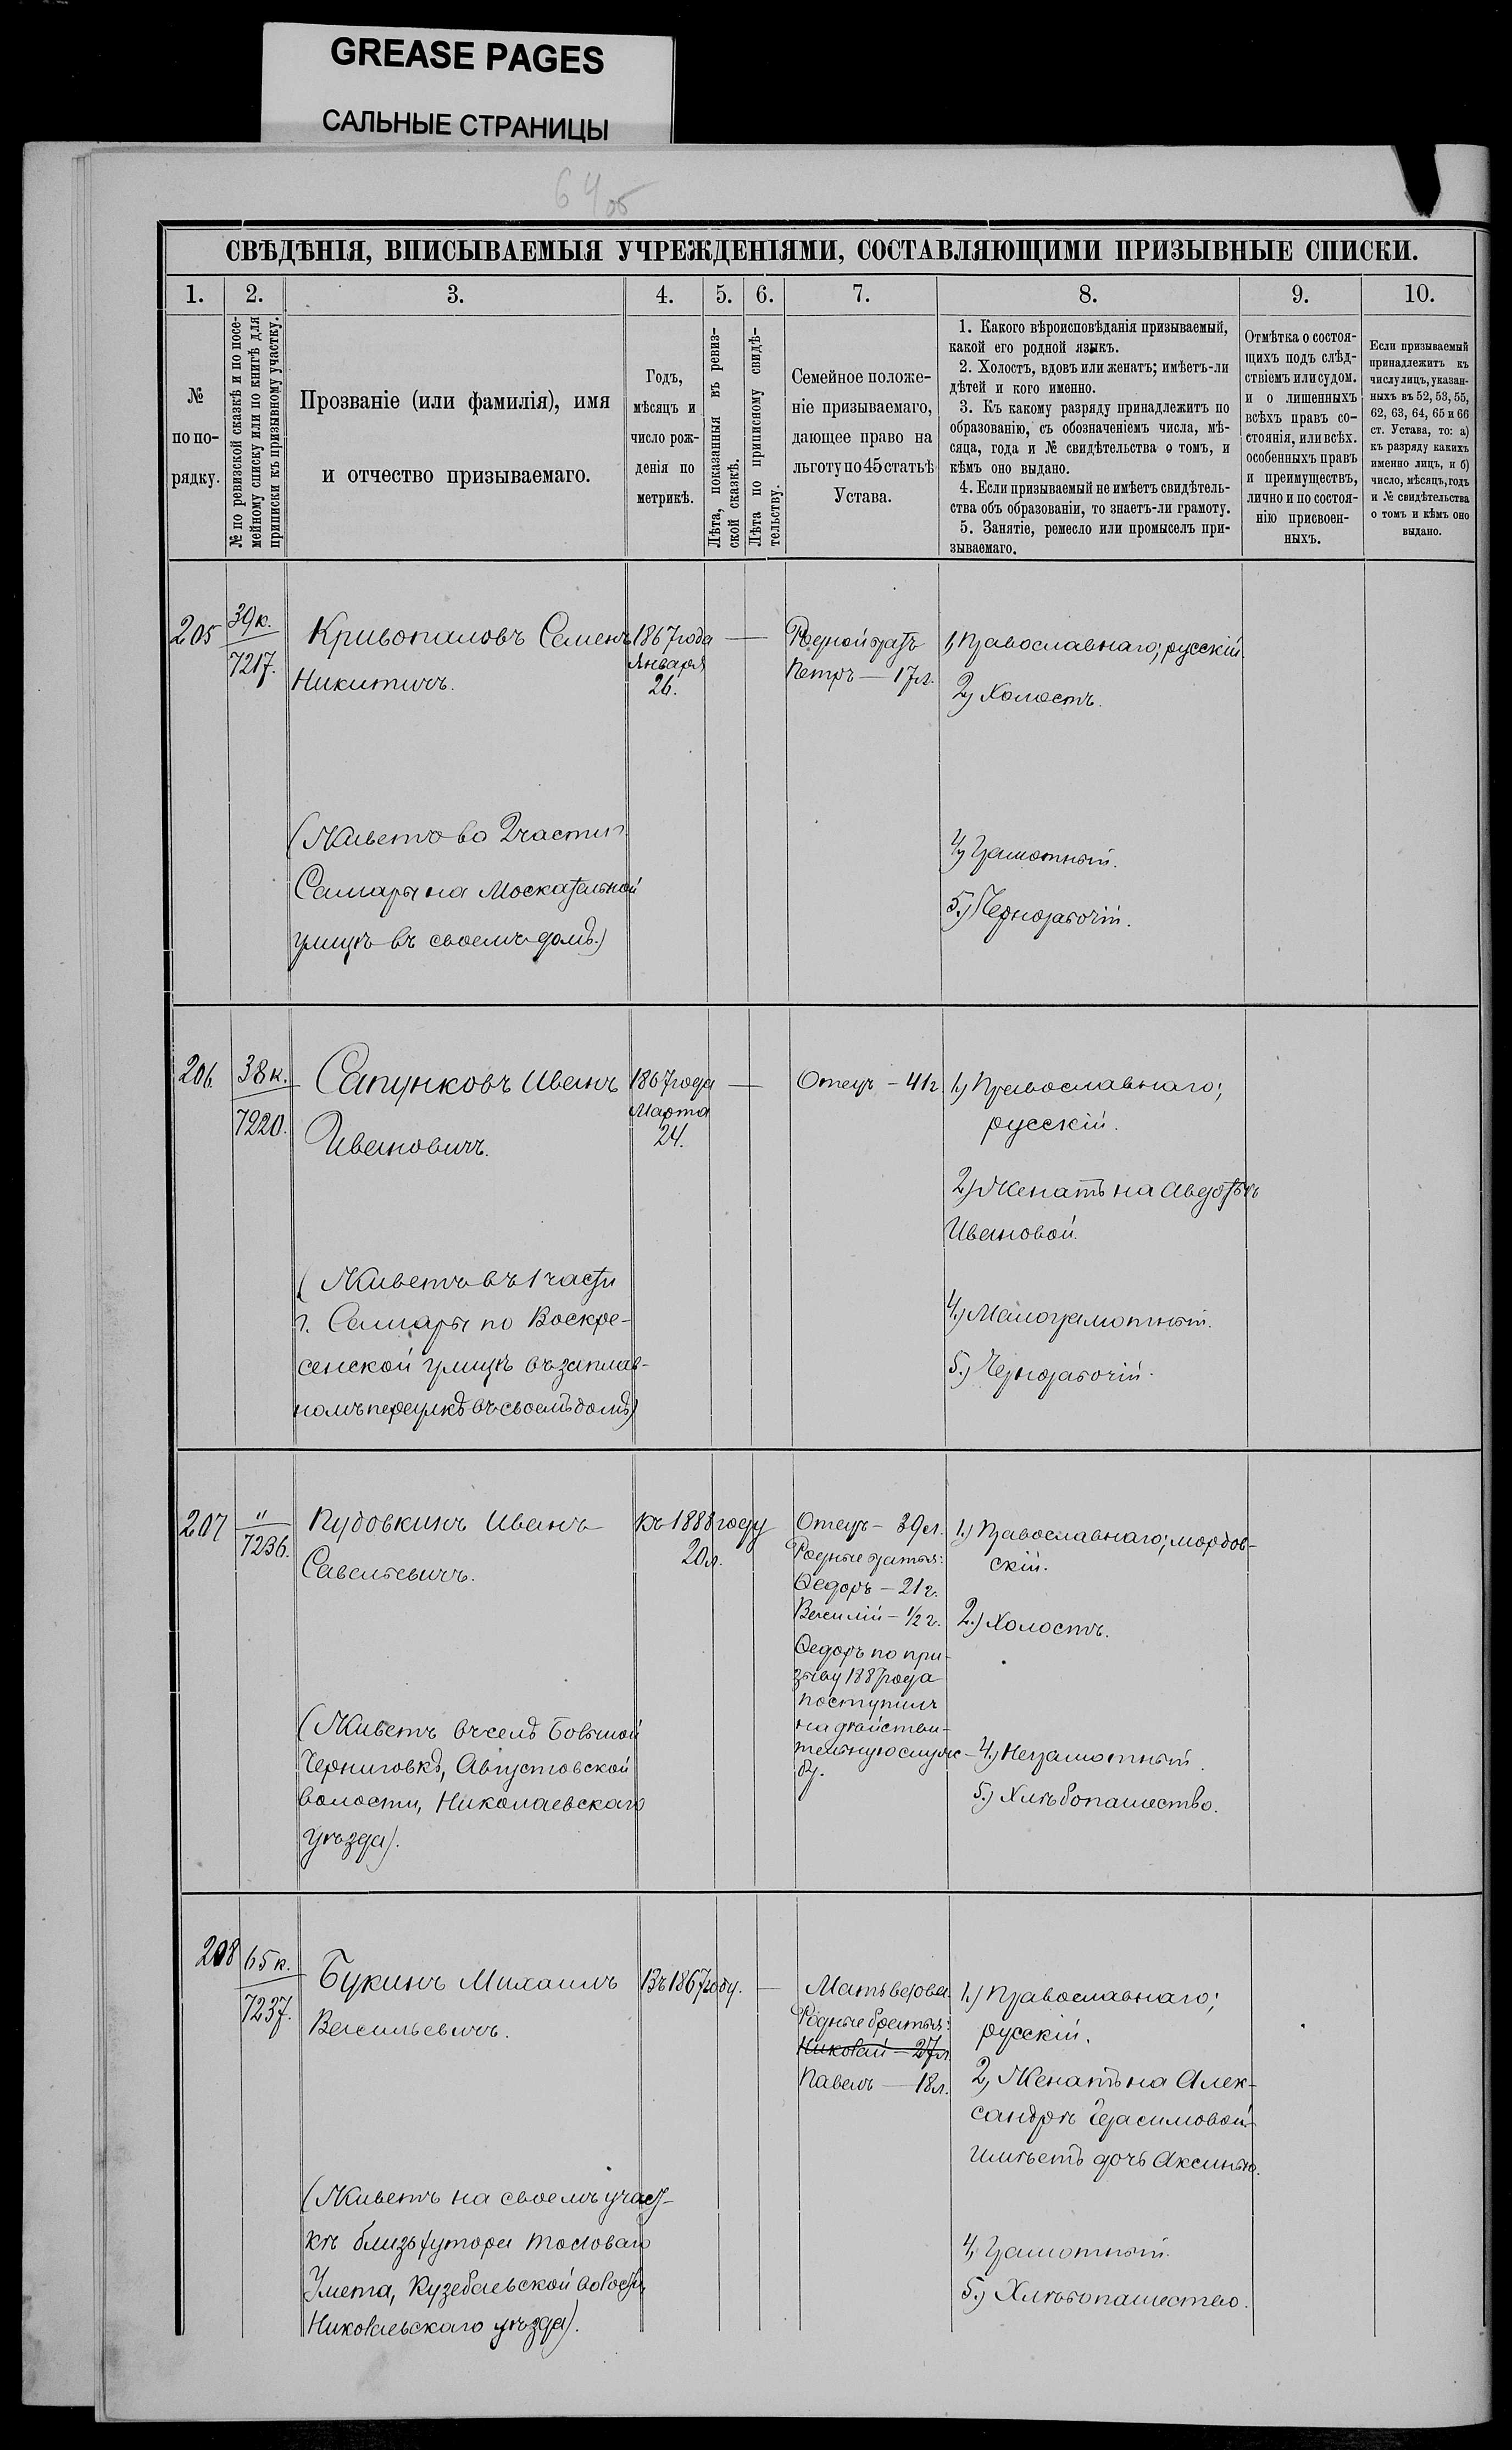 GREASE PAGES
САЛЬНЫЕ СТРАНИЦЫ
64 об
СВѢДѢНІЯ, ВПИСЫВАЕМЫЯ УЧРЕЖДЕНІЯМИ, СОСТАВЛЯЮЩИМИ ПРИЗЫВНЫЕ СПИСКИ.
1.
2.
3.
4.
5.
6.
7.
8.
9.
10.
№
по по-
рядку.
№ по ревизской сказкѣ и по посе-
мейному списку или по книгѣ для
приписки къ призывному участку.
Прозваніе (или фамилія), имя
и отчество призываемаго.
Годъ,
мѣсяцъ и
число рож-
денія по
метрикѣ.
Лѣта, показанныя въ ревиз-
ской сказкѣ.
Лѣта по приписному свидѣ-
тельству.
Семейное положе-
ніе призываемаго,
дающее право на
льготу по 45 статьѣ
Устава.
1. Какого вѣроисповѣданія призываемый,
какой его родной языкъ.
2. Холостъ, вдовъ или женатъ; имѣетъ-ли
дѣтей и кого именно.
3. Къ какому разряду принадлежитъ по
образованію, съ обозначеніемъ числа, мѣ-
сяца, года и № свидѣтельства о томъ, и
кѣмъ оно выдано.
4. Если призываемый не имѣетъ свидѣтель-
ства объ образованіи, то знаетъ-ли грамоту.
5. Занятіе, ремесло или промыселъ при-
зываемаго.
Отмѣтка о состоя-
щихъ подъ слѣд-
ствіемъ или судомъ.
и о лишенныхъ
всѣхъ правъ со-
стоянія, или всѣх.
особенныхъ правъ
и преимуществъ,
лично и по состоя-
нію присвоен-
ныхъ.
Если призываемый
принадлежитъ къ
числу лицъ, указан-
ныхъ въ 52, 53, 55,
62, 63, 64, 65 и 66
ст. Устава, то: а)
къ разряду какихъ
именно лицъ, и б)
число, мѣсяцъ, годъ
и № свидѣтельства
о томъ и кѣмъ оно
выдано.
205
39 к.
7217.
Кривопаловъ Семенъ
Никитичъ.
(Живетъ во 2 части г.
Самары на Москательной
улицѣ въ своемъ домѣ.)
1867 года
Января
26.
Родной братъ
Петръ — 17 л.
1, Православнаго; русскій.
2, Холостъ.
4, Грамотный.
5.) Чернорабочій.
206
38 к.
7220.
Сапунковъ Иванъ
Ивановичъ.
(Живетъ въ 1 части
г. Самары по Воскре-
сенской улицѣ въ заплав-
номъ переулкѣ въ своемъ домѣ)
1867 года
Марта
24.
Отецъ — 41 г
1.) Православнаго;
русскій.
2.) Женатъ на Авдотьѣ
Ивановой.
4.) Малограмотный.
5.) Чернорабочій.
207
"
7236.
Пудовкинъ Иванъ
Савельевичъ.
(Живетъ въ селѣ Большой
Черниговкѣ, Августовской
волости, Николаевскаго
уѣзда).
Къ 1888 году
20 л.
Отецъ — 39 л.
Родные братья:
Федоръ — 21 г.
Василій — 1/2 г.
Федоръ по при-
зыву 1887 года
поступилъ
на дѣйстви-
тельную служ-
бу.
1.) Православнаго; мордов-
скій.
2.) Холостъ.
4.) Неграмотный.
5.) Хлѣбопашество.
208
65 к.
7237.
Букинъ Михаилъ
Васильевичъ.
(Живетъ на своемъ учас-
кѣ близь хутора Толоваго
Умета, Кузебаевской волости
Николаевскаго уѣзда).
Въ 1867 году.
Мать вдова.
Родные братья:
Николай — 27 л
Павелъ — 18 л.
1.) Православнаго;
русскій.
2, Женатъ на Алек-
сандрѣ Герасимовой
имѣетъ дочь Аксинью.
4, Грамотный.
5.) Хлѣбопашество.